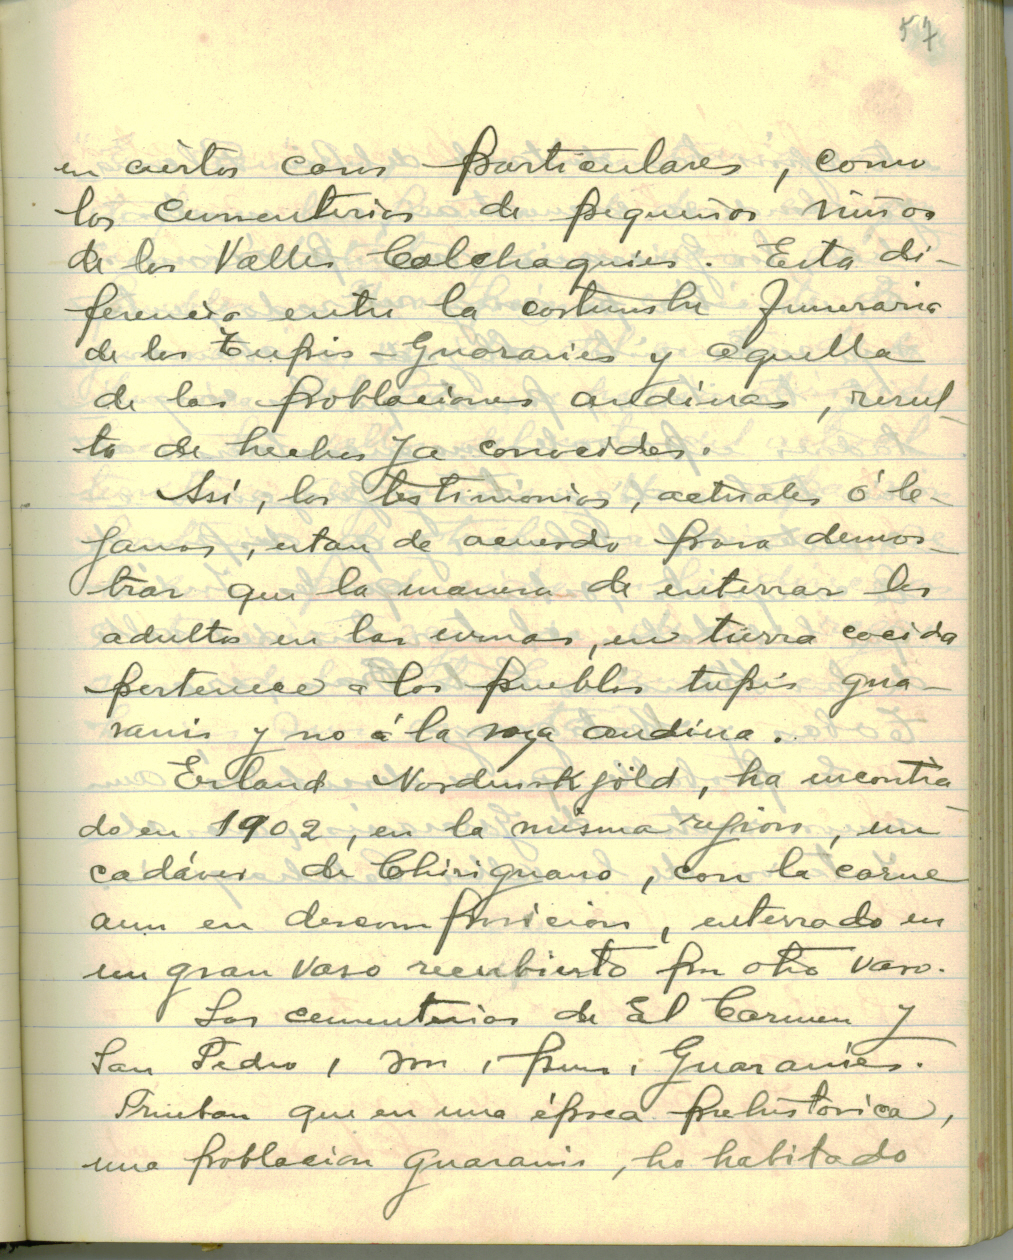 57
en ciertos casos particulares, como
los cementerios de pequeños niños
de los Valles Calchaquies. Esta di-
ferencia entre la costumbre funeraria
de los Tupis-Guaranies y aquella
de las poblaciones andinas, resul-
ta de hechos ya conocidos.
Así, los testimonios, actuales ó le-
janos, estan de acuerdo para demos-
trar que la manera de enterrar los
adultos en las urnas, en tierra cocida
pertenece a los pueblos tupis gua-
ranis y no á la raza andina.
Erland Nordenskjöld, ha encontra-
do en 1902, en la misma region, un
cadáver de Chiriguano, con la carne
aun en descomposicion, enterrado en
un gran vaso recubierto por otro vaso.
Los cementerios de El Carmen y
San Pedro, son, pues, Guaranies.
Prueban que en una época prehistorica,
una poblacion guaranis, ha habitado